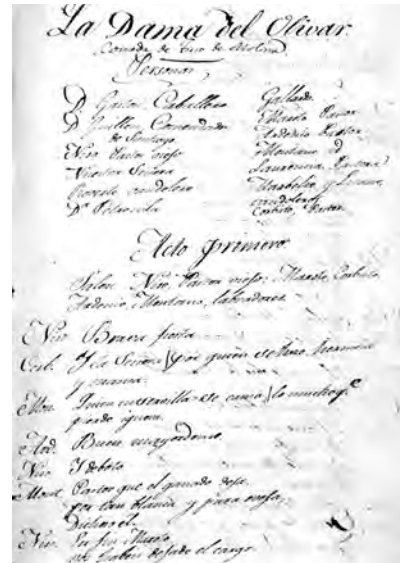 La Dama del Olivar.
Comedia de Tirso de Molina
Personas
D. Gaston, Caballero
D. Guillen, Comendador
de Santiago
Niso Pastor viejo
Nuestra Señora
Roberto vandolero
Dª Petronila
Gallardo
Maroto Pastor
Ardenio Pastor
Montano id
Laurencia, Pastora
Marbelio y Lirano,
vandoleros
Corbato, Pastor
Acto primero.
Salen Niso, Pastor viejo, Maroto, Corbato,
Ardenio, Montano, labradores
Niso Brava fiesta
Corb. Y la Señora por quien se hizo, hermosa
y
Mon. Quien no se le lo mucho q.e
pierde ignora.
Ard. Buen mayordomo.
Niso Y deboto
Mont. Pastor que el ganado deja
por tan blanca y pura oveja,
Dichoso el.
Niso. En fin Maroto
habeis dejado el cargo.